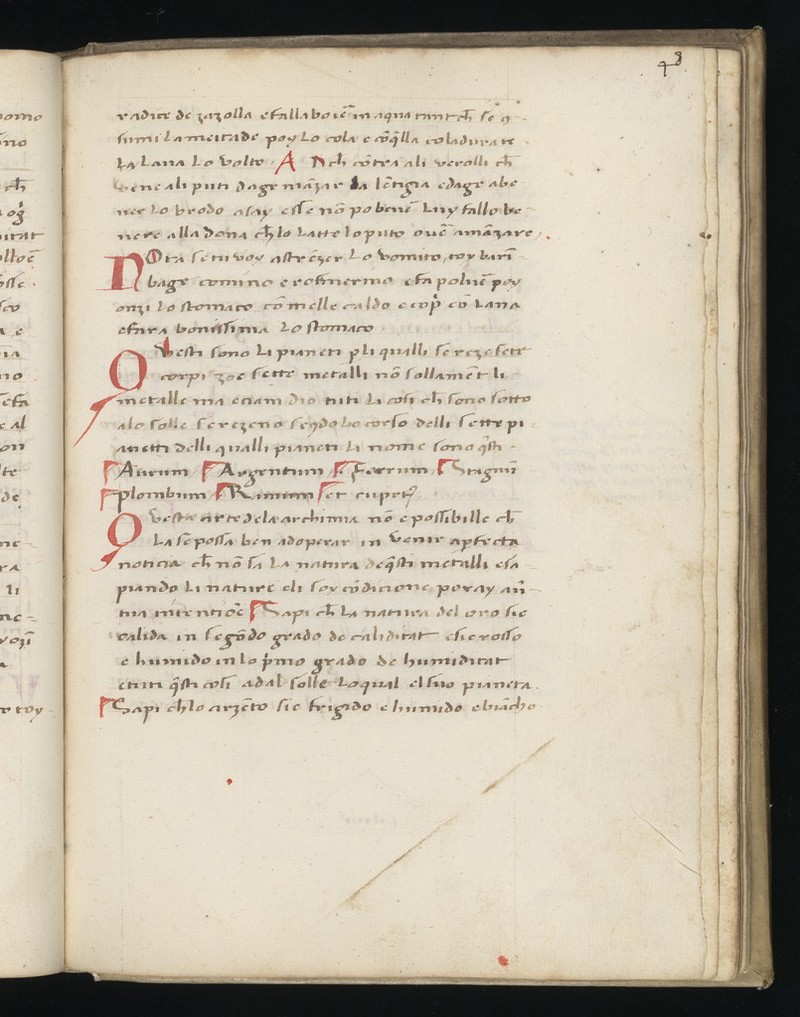 radice de zazolla e falla boiē in aqua tant ch̄ se ꝯ-
sumi la meitade poy lo cola e cō q̄lla coladura te
la lava lo volto. Anch cōtra ali verolli ch̄
vene ali puti dage māzar la lētigia e dage abe
ver lo brodo asay essē nō po bevē luy fallo be-
vere alla dona ch̄ lo latte lo puto ovē amāzare.
Nota se tu voy astrēzer lo vomito toy bari-
bage comino e rosmerino e fa polvē poy
onzi lo stomaco cō melle caldo e cop̄ cō lana
e fara bonissima lo stomaco
Questi sono li pianeti p li qualli se reze sette
corpi zoe sette metalli nō sollamēt li
metalle ma eciam dio tuti li cosi ch̄ sono sotto
alo solle se rezeno seɥdo lo corso delli sette pi
anetti delli qualli pianeti li nome sono q̄sti
Aurum Argentum Ferrum Stagnū
plombum Ramum et cupr̄
Questa arte dela archimia nō e possibille ch̄
la sē possa ben adoperar in venir a pfecta
noticia ch̄ nō sa la natura de q̄sti metalli e sa
piando li nature e li soy cōdicione poray
tua intentiōe Sapi ch̄ la natura del oro sie
calida in segōdo grado de caliditat e sie rosso
e humido in lo p̄mo grado de humiditat
e tuti q̄sti cosi a dal solle lo qual el suo pianeta.
Sapi ch̄ lo arzēto sie frigido e humido e biācho